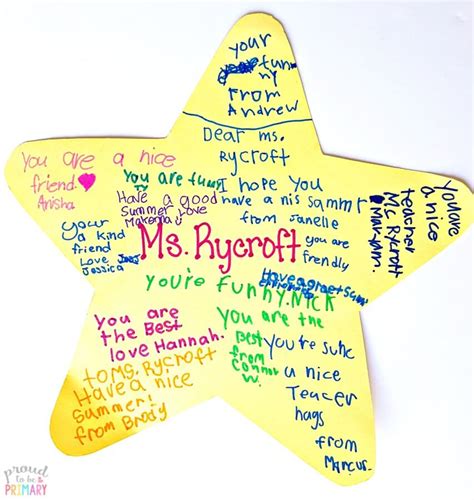 your
fun
ny
From
Andrew
Dear ms.
Rycroft
I hope You
have a nis sammr
from Janelle
You are a nice
friend
Anisha
You are funy
Ty
Have a good
Summer Love
Makenna
your
a kind
friend
Love
Jessica
Ms. Rycroft
you are
frendly
You are
a nice
teacher
Ms. Rycroft
MaryAnn.
Have a great
you're funny. NICK
You are
the Best
love Hannah.
You are the
Best
from
Connor
W
You're suhc
a nice
Teacer
hags
from
Marcus.
to Ms. Rycroft
Have a nice
summer!
from Brody
proud
to be a
PRIMARY